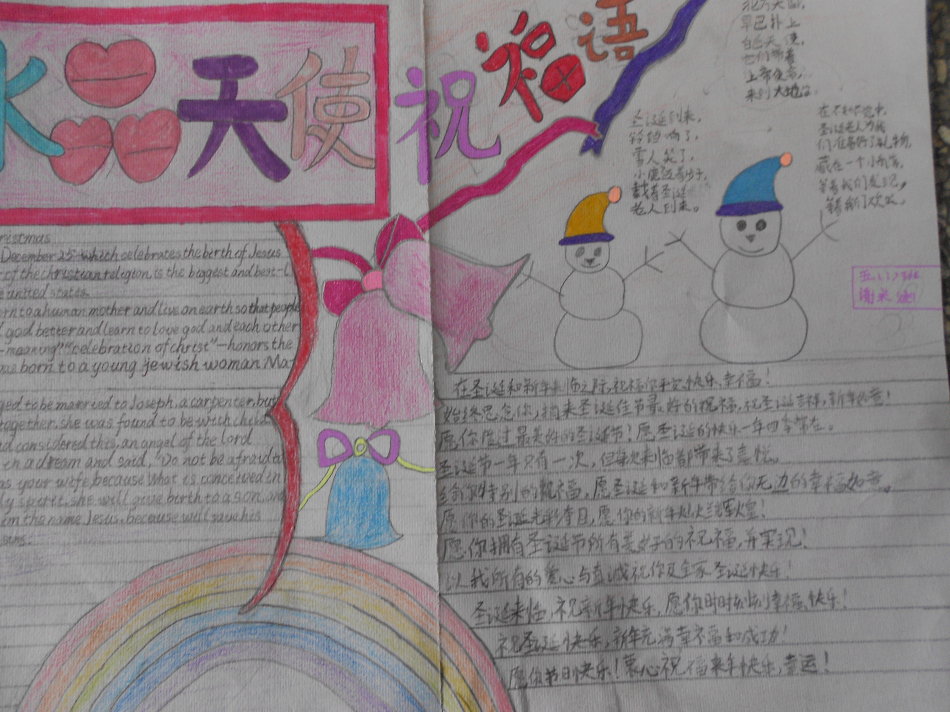 天使
祝福语
早已扑上
来到大地。
圣诞到来,
铃铛响了,
雪人笑了,
戴着圣诞
老人到来。
圣诞老人为我
们准备好了礼物,
藏在一个小角落,
等着我们发现,
等我们欢
ristmas
December 25 which celebrates the birth of Jesus
r of the christian relegion, is the biggest and best-l
e united states.
orn to a human mother and live on earth so that people
d god better and learn to love god and each other
-meaning "celebration of christ"—honors the
as born to a young jewish woman Ma
ged to be married to Joseph, a carpenter, but
together, she was found to be with child
d considered this, an angel of the Lord
in a dream and said, "Do not be afraid t
as your wife, because what is conceived in
ly spirit. she will give birth to a son, an
im the name Jesus, because will save his
sins.
在圣诞和新年来临之际,祝福你平安快乐,幸福!
始终思念你,捎来圣诞佳节最好的祝福,祝圣诞吉祥,新年如意!
愿你度过最美好的圣诞节!愿圣诞的快乐一年四季常在。
圣诞节一年只有一次,但每次来临都带来了喜悦。
给你特别的祝福,愿圣诞和新年带给你无边的幸福如意。
愿你的圣诞光彩夺目,愿你的新年灿烂辉煌!
愿你拥有圣诞节所有美好的祝福,并实现!
以我所有的爱心与真诚祝你及全家圣诞快乐!
圣诞来临,祝新年快乐,愿你时时刻刻幸福快乐!
祝圣诞快乐,新年充满幸福和成功!
愿你节日快乐!衷心祝福来年快乐,幸运!